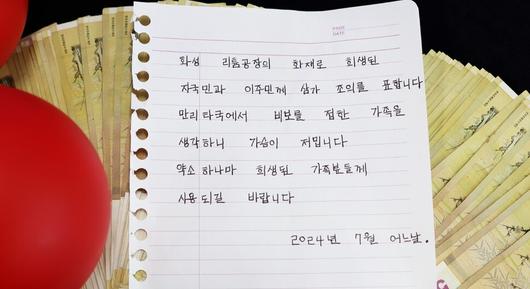 PAGE
DATE
화성 리튬공장의 화재로 희생된
자국민과 이주민께 삼가 조의를 표합니다
만리 타국에서 비보를 접한 가족을
생각하니 가슴이 저밉니다
약소하나마 희생된 가족분들께
사용되길 바랍니다
2024년 7월 어느날.